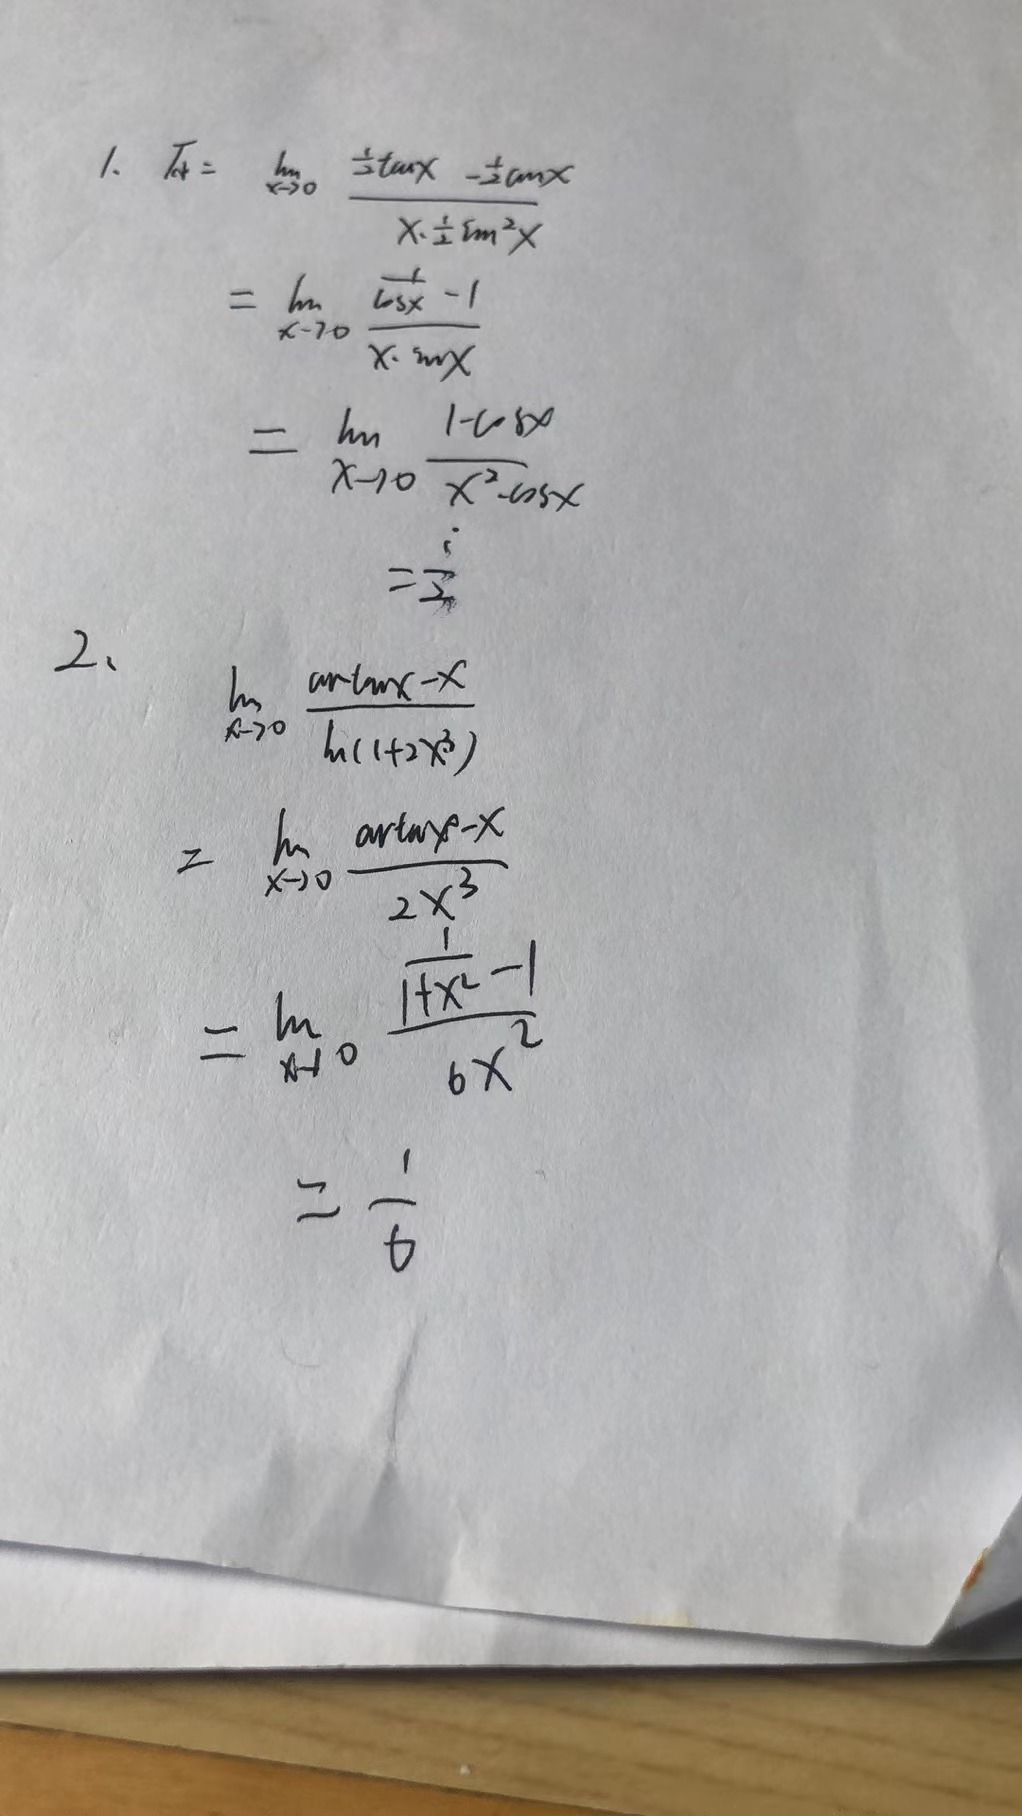 1. 原式= lim x→0 (½tanx - ½sinx)/(x·½sin²x)
= lim x→0 (1/cosx - 1)/(x·sinx)
= lim x→0 (1-cosx)/(x²·cosx)
= 1/2
2、
lim x→0 (artanx-x)/(ln(1+2x³))
= lim x→0 (artanx-x)/(2x³)
= lim x→0 (1/(1+x²) - 1)/(6x²)
= 1/6